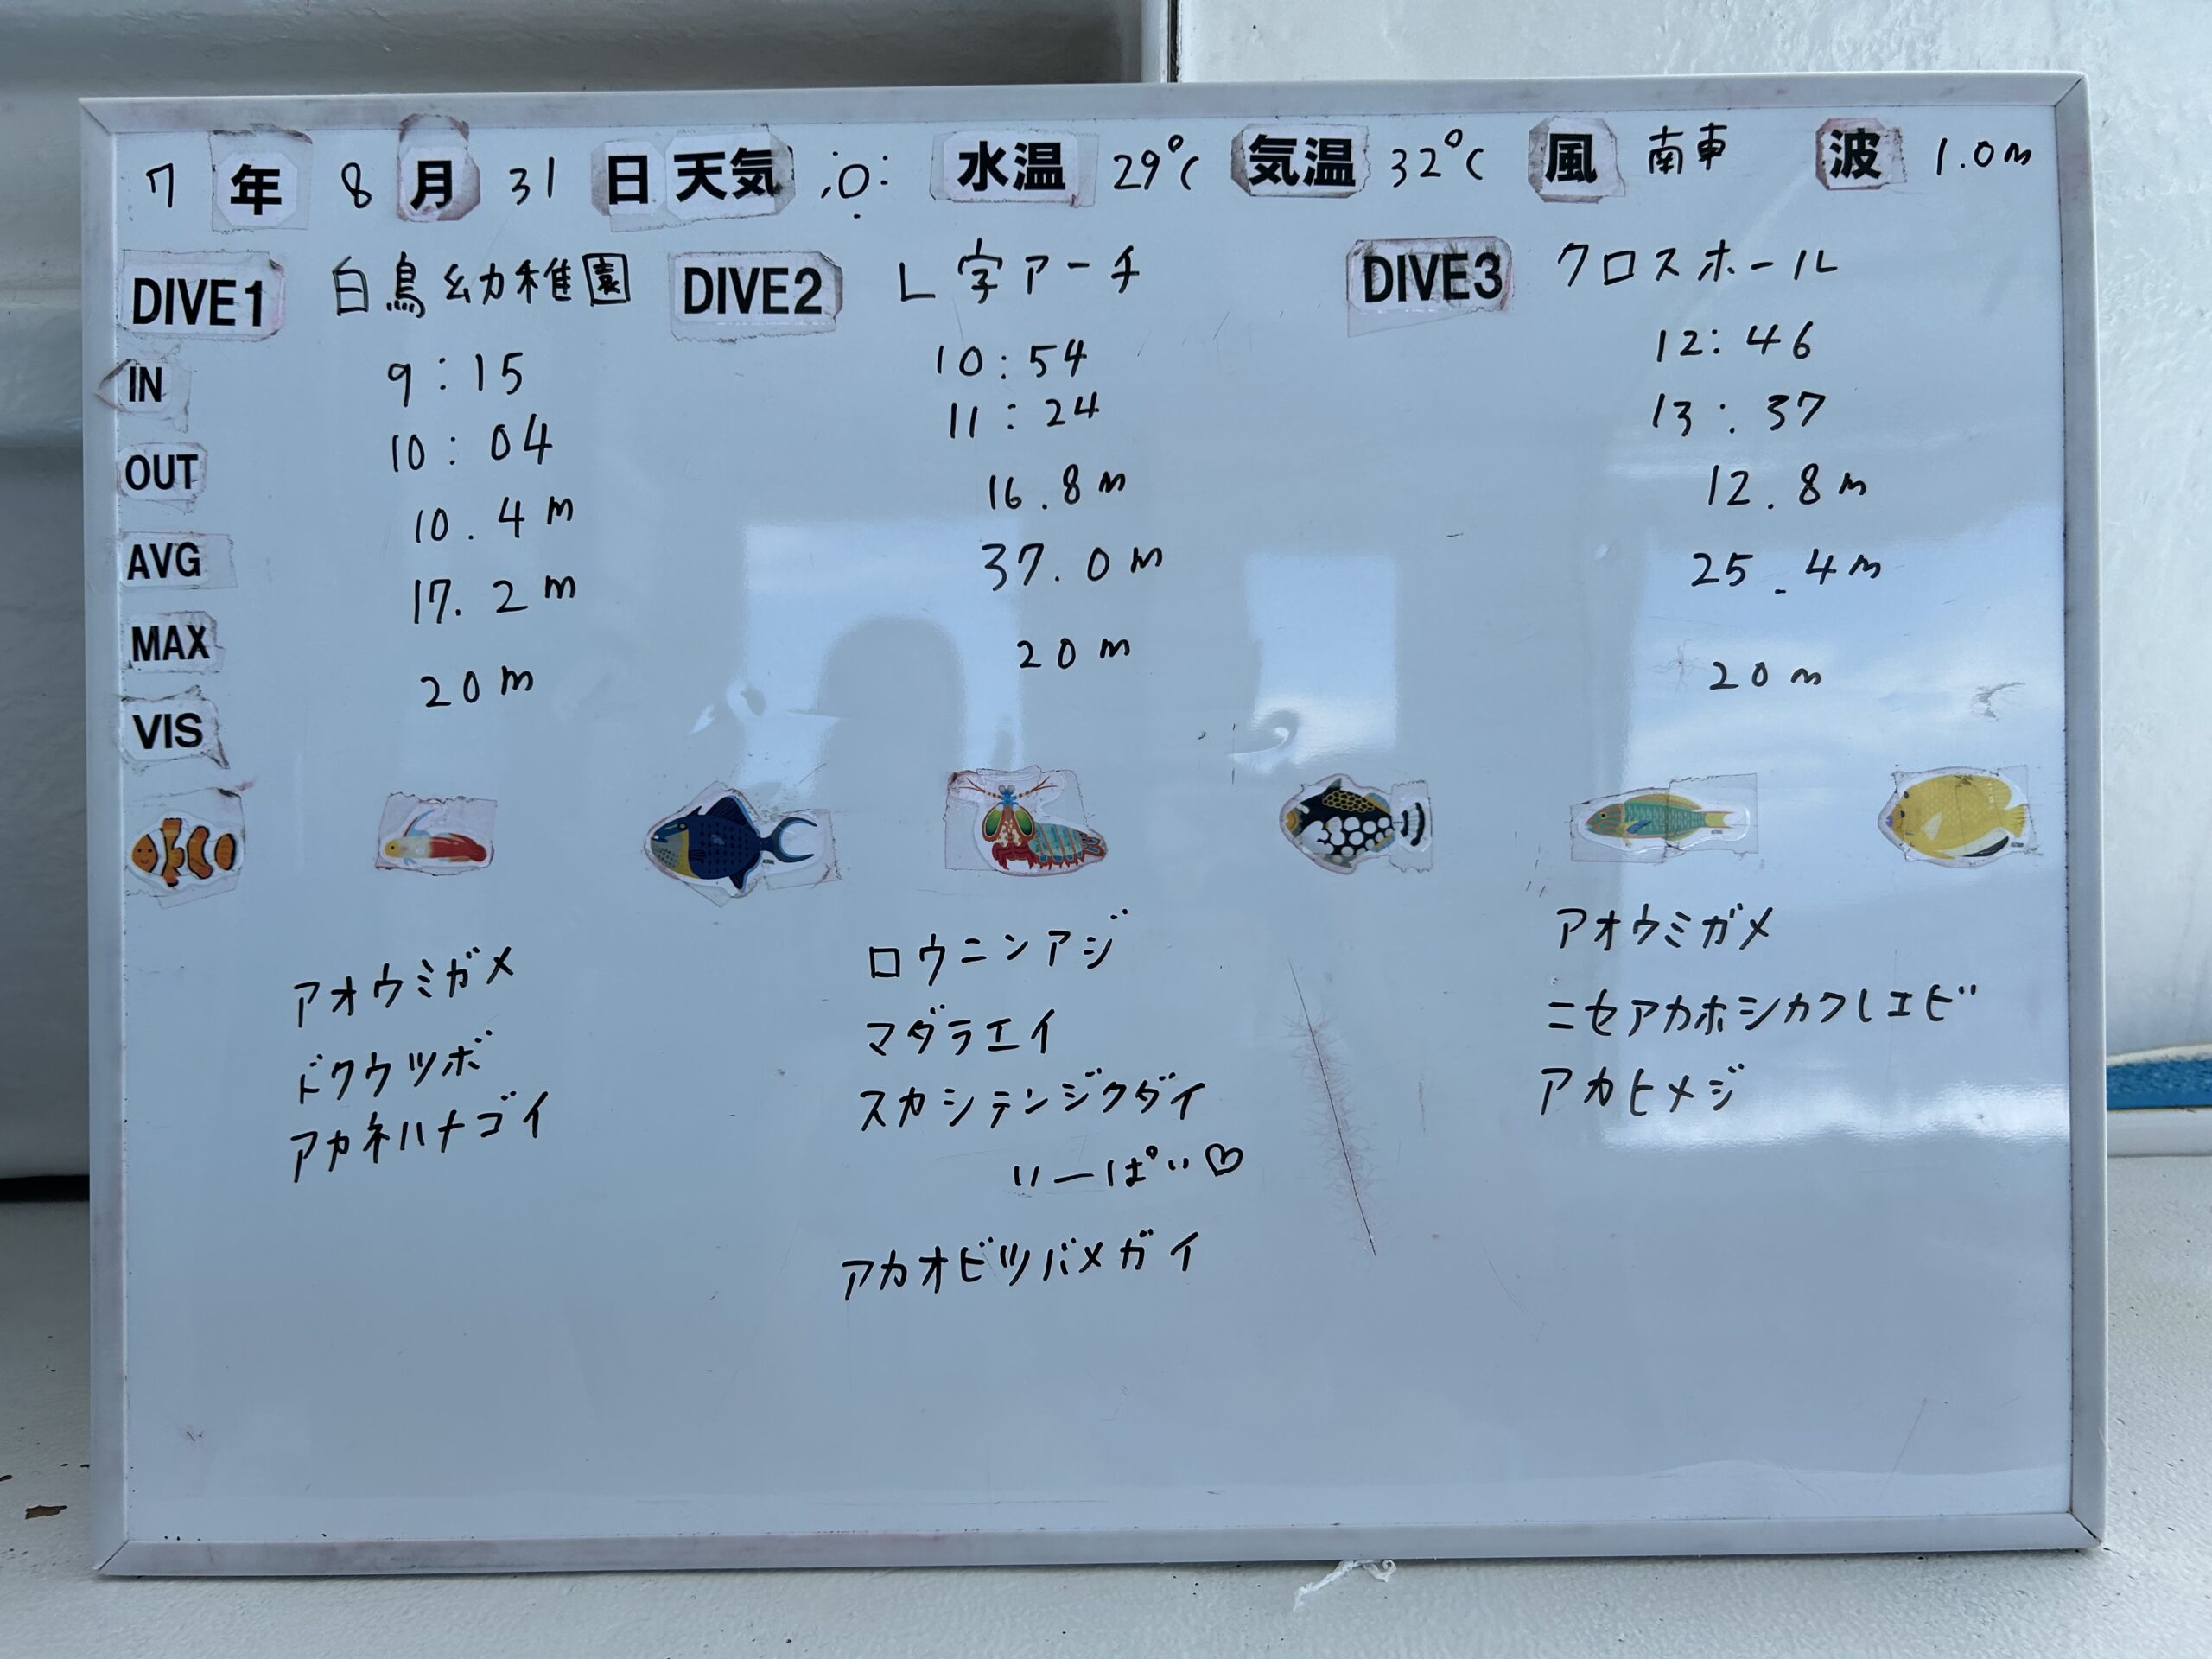 7 年 8 月 31 日 天気 水温 29℃ 気温 32℃ 風 南東 波 1.0m
DIVE1 白鳥幼稚園 DIVE2 L字アーチ DIVE3 クロスホール
IN 9:15 10:54 12:46
OUT 10:04 11:24 13:37
AVG 10.4m 16.8m 12.8m
MAX 17.2m 37.0m 25.4m
VIS 20m 20m 20m
アオウミガメ
ドクウツボ
アカネハナゴイ
ロウニンアジ
マダラエイ
スカシテンジクダイ
いーぱい♡
アカオビツバメガイ
アオウミガメ
ニセアカホシカクレエビ
アカヒメジ